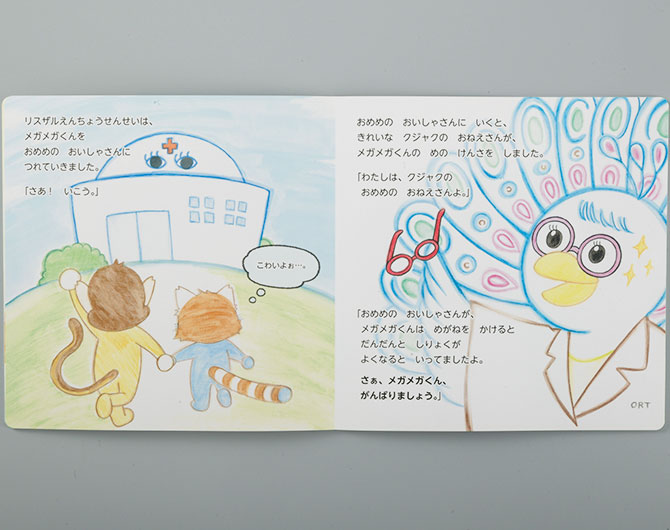 リスザルえんちょうせんせいは、
メガメガくんを
おめめの おいしゃさんに
つれていきました。
「さあ! いこう。」
こわいよぉ…。
おめめの おいしゃさんに いくと、
きれいな クジャクの おねえさんが、
メガメガくんの めの けんさを しました。
「わたしは、クジャクの
おめめの おねえさんよ。」
「おめめの おいしゃさんが、
メガメガくんは めがねを かけると
だんだんと しりょくが
よくなると いってましたよ。
さぁ、メガメガくん、
がんばりましょう。」
ORT